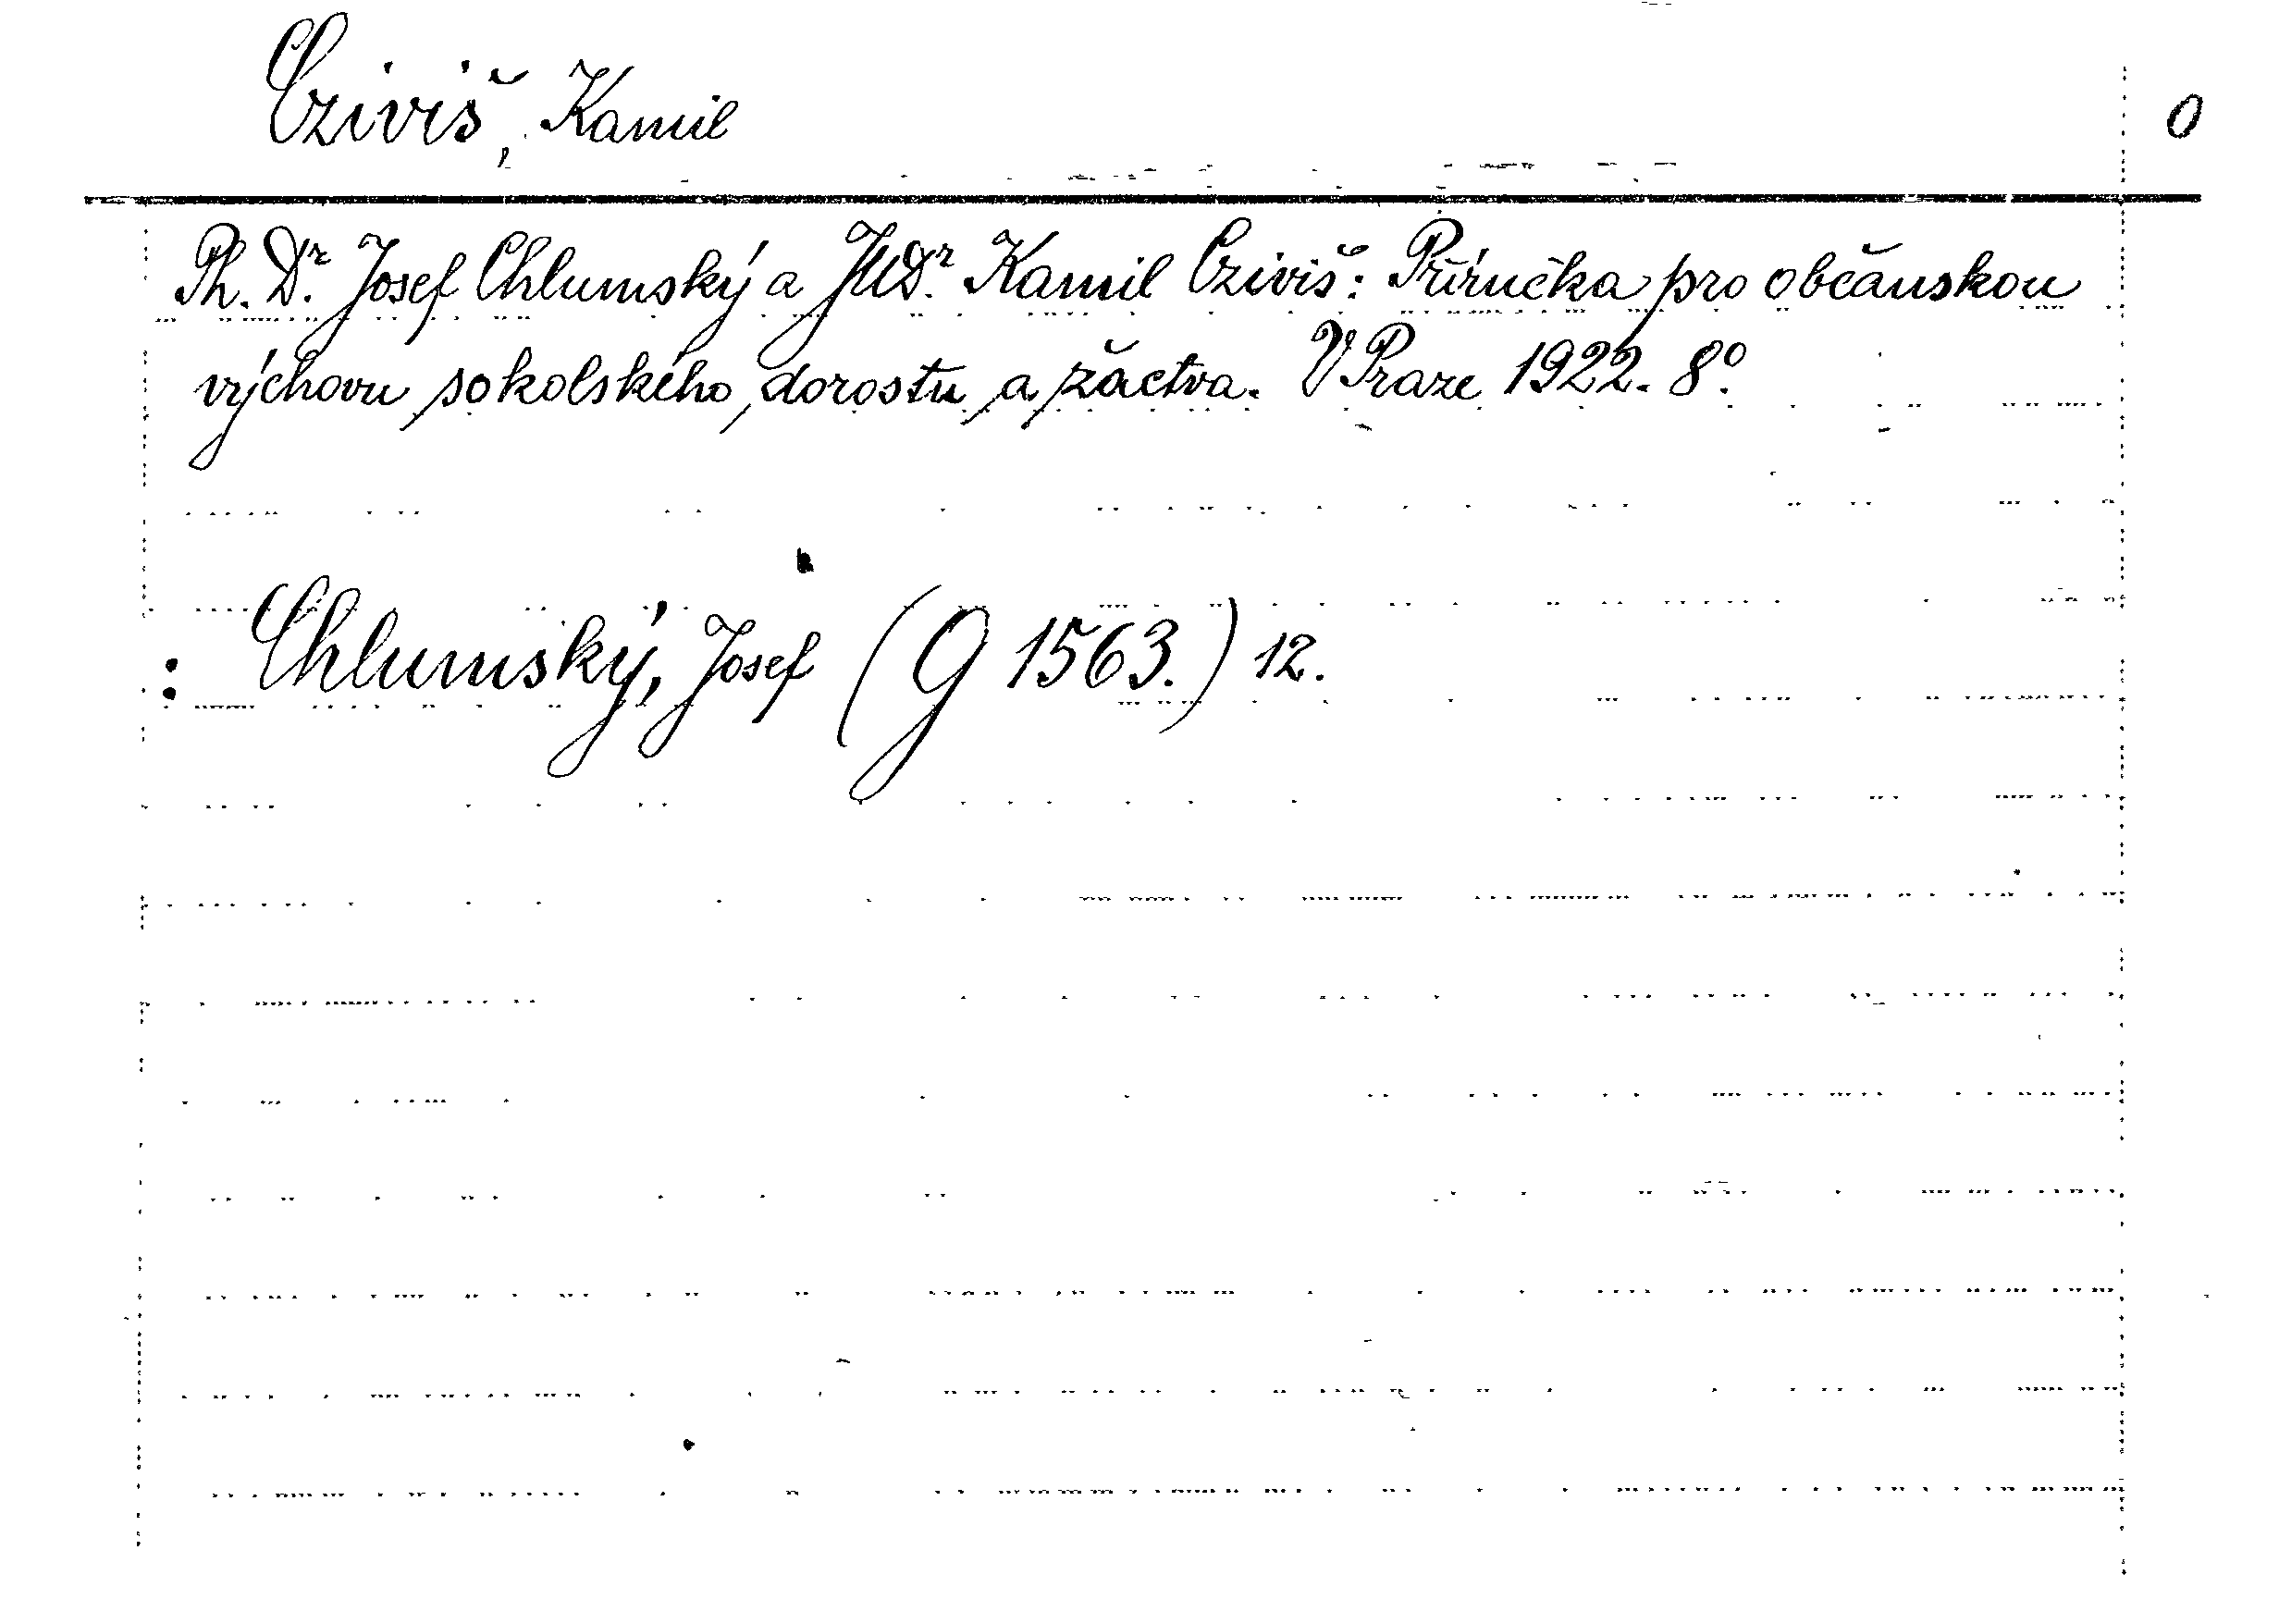 Cziviš, Kamil
0
Ph. Dr. Josef Chlumský a JUDr. Kamil Cziviš: Příručka pro občanskou
výchovu sokolského dorostu a žactva. V Praze 1922. 8°.
: Chlumský, Josef (G 1563.) 12.